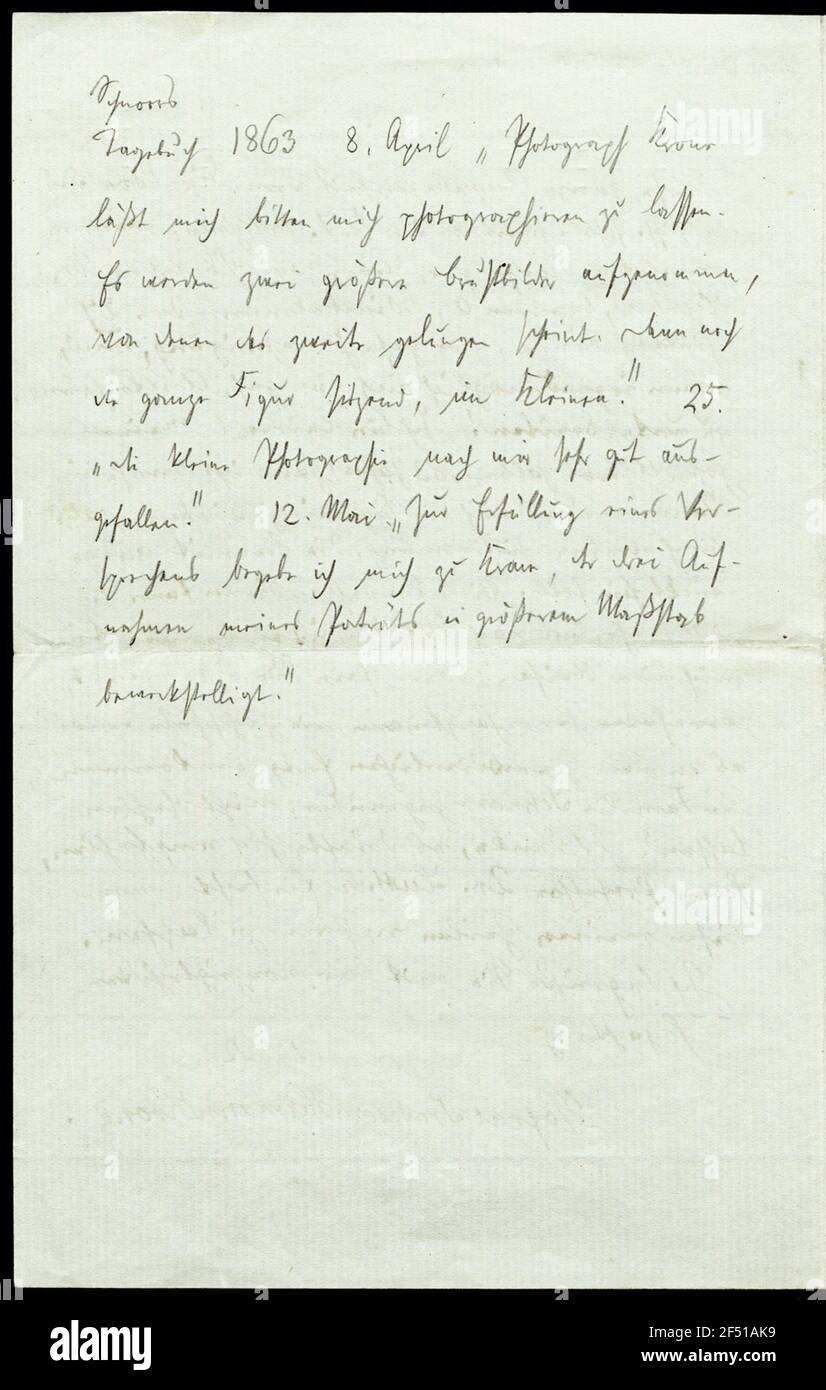 Schnorrs
Tagebuch 1863 8. April „Photograph Krone
läßt mich bitten mich photographieren zu lassen.
Es werden zwei größere Brustbilder aufgenommen,
von denen das zweite gelungen scheint. Dann noch
die ganze Figur sitzend, im Kleinen." 25.
„Die kleine Photographie nach mir sehr gut aus-
gefallen." 12. Mai „Zur Erfüllung eines Ver-
sprechens begebe ich mich zu Krone, der drei Auf-
nahmen meines Porträts in größerem Maßstab
bewerkstelligt."
alamy
alamy
alamy
Image ID: 2F51AK9
www.alamy.com